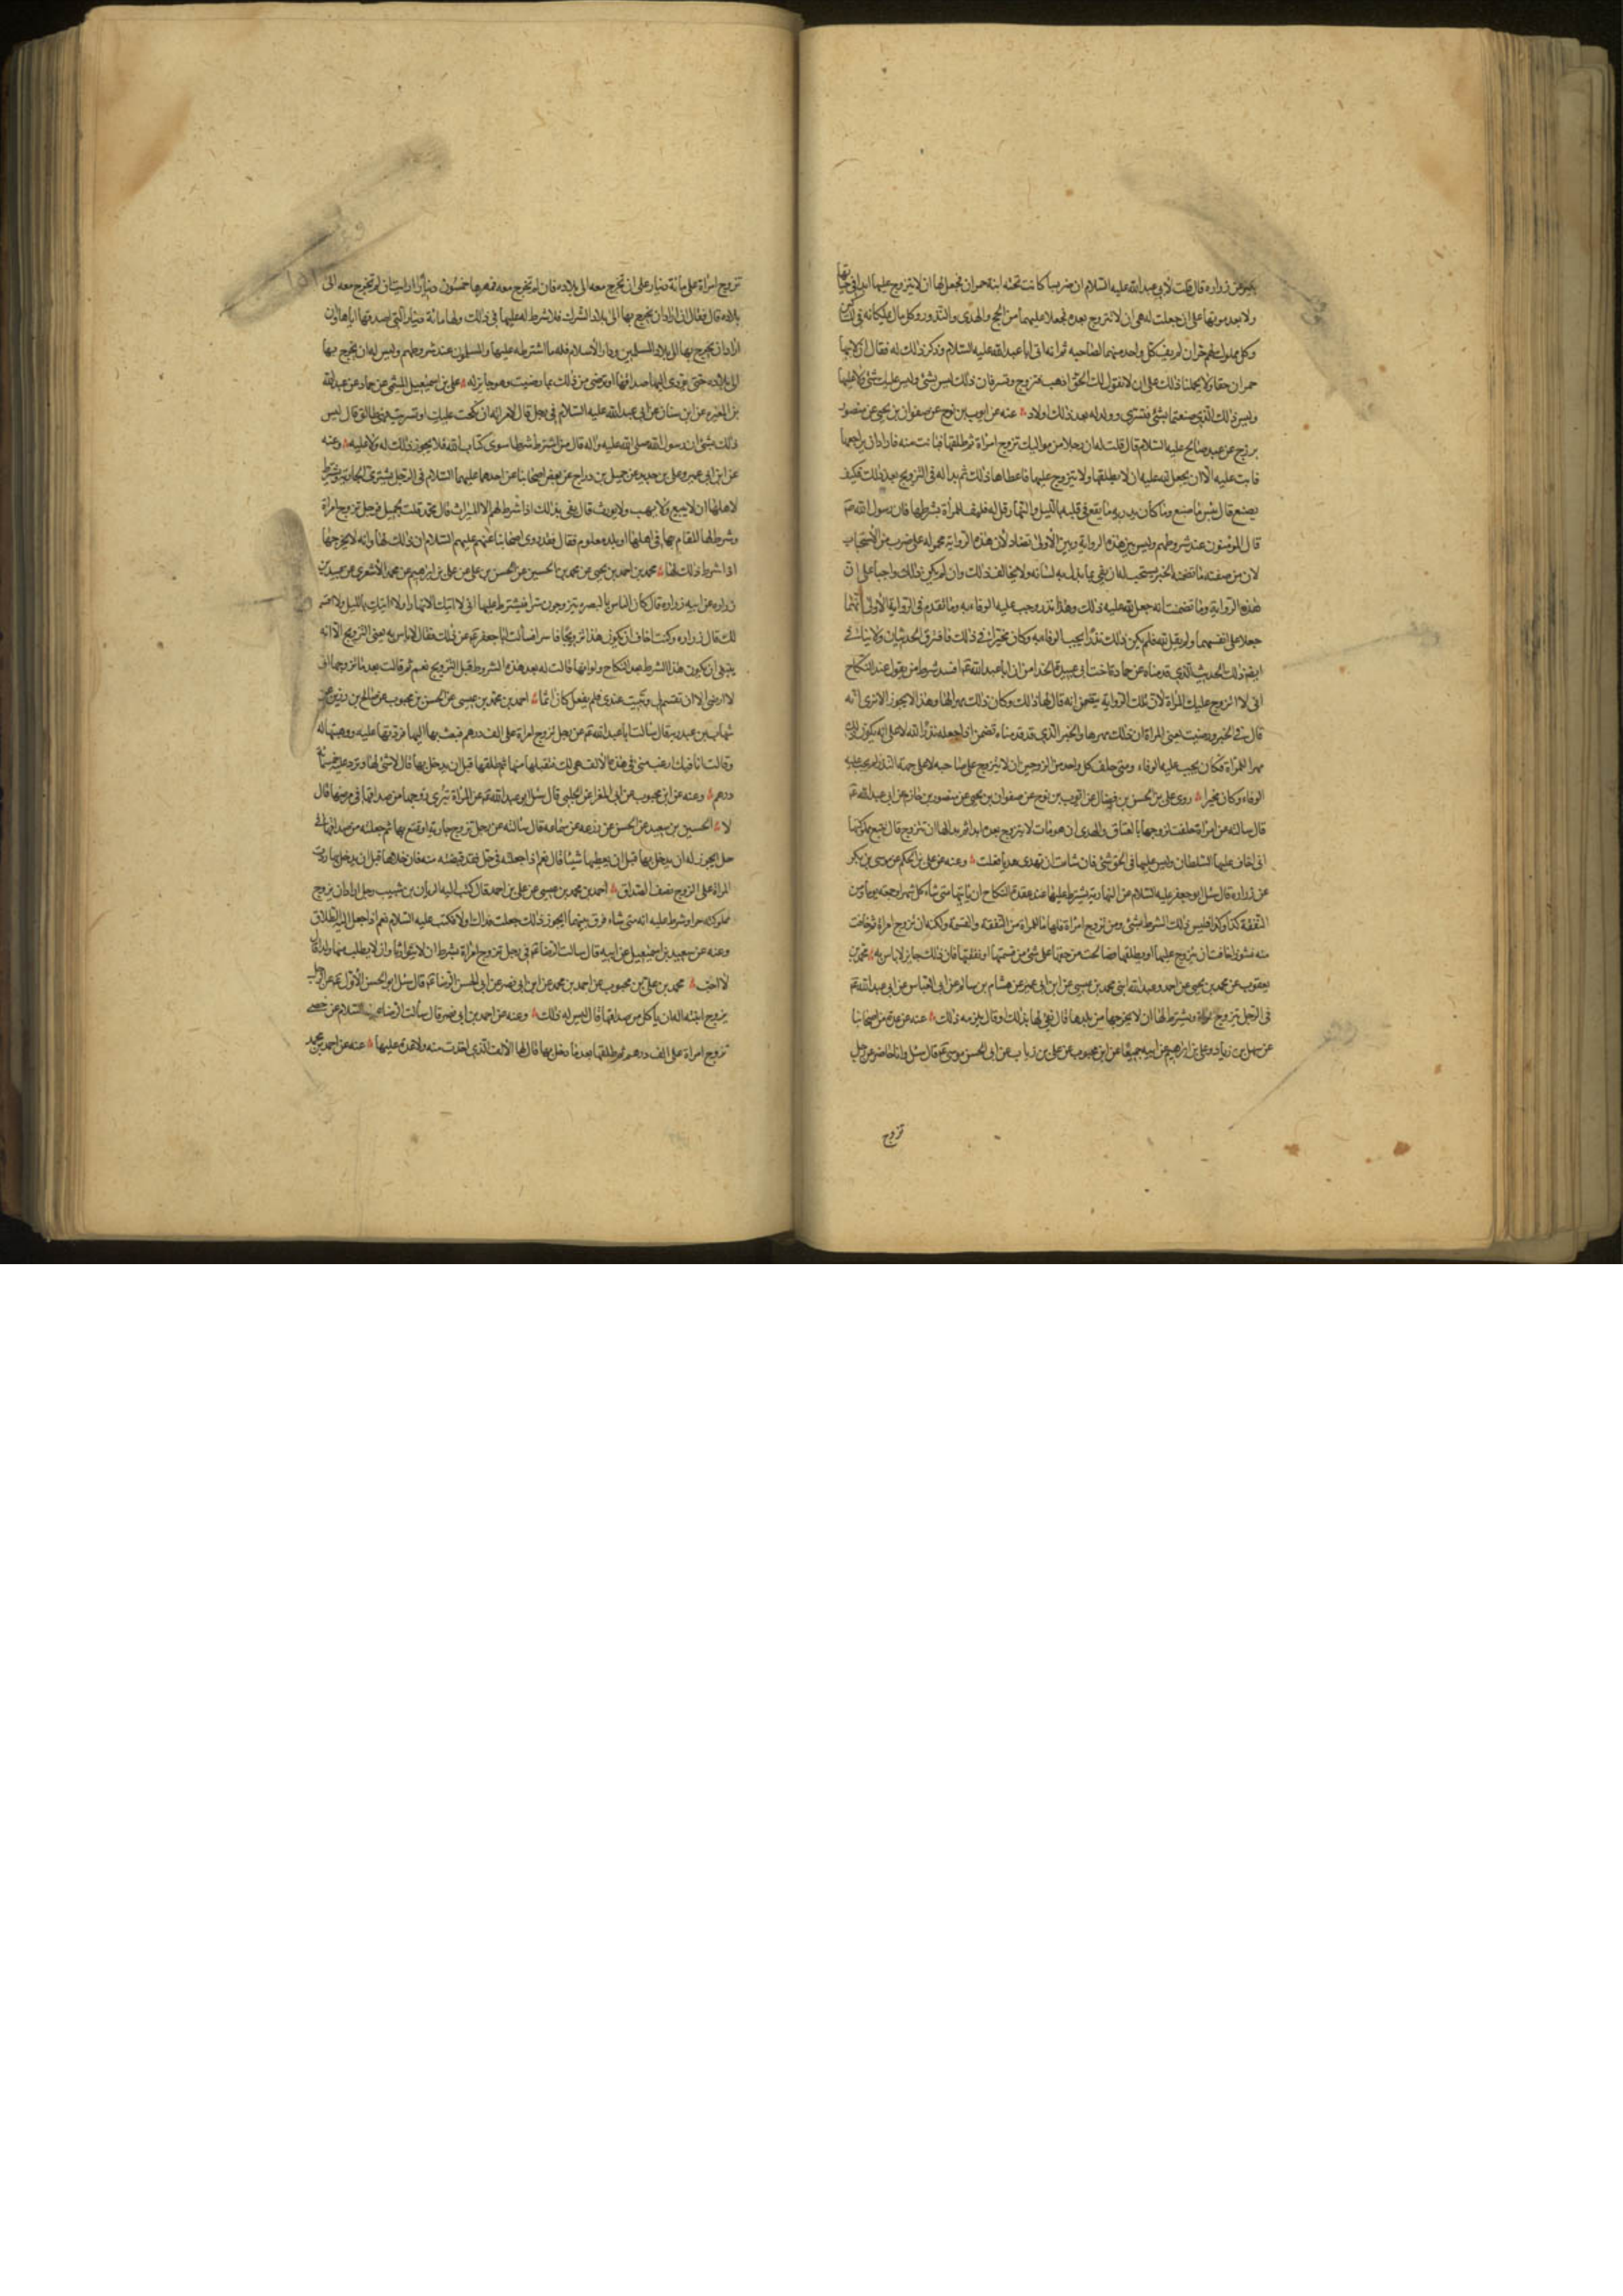 بكير عن زرارة قال قلت لأبي عبد الله عليه السلام ان ضريسا كانت تحته ابنة حمران فجعل لها ان لا يتزوج عليها ابدا في حياتها
ولا بعد موتها على ان جعلت له هي ان لا تتزوج بعده فجعلا عليهما من الحج والهدى والنذور وكل مال يملكانه في المساكين
وكل مملوك لهم حر ان لم يف كل واحد منهما لصاحبه ثم انه اتى ابا عبد الله عليه السلام وذكر ذلك له فقال ان لابيها
حمران حقا ولا يحملنا ذلك على ان لا نقول لك الحق اذهب فتزوج وتسر فان ذلك ليس بشئ وليس عليك شئ ولا عليها
وليس ذلك الذي صنعتما بشئ فتسرى وولد له بعد ذلك اولاد عنه عن ايوب بن نوح عن صفوان بن يحيى عن منصور
بزرج عن عبد صالح عليه السلام قال قلت له ان رجلا من مواليك تزوج امرأة ثم طلقها فبانت منه فاراد ان يراجعها
فابت عليه الا ان يجعل لله عليه ان لا يطلقها ولا يتزوج عليها فاعطاها ذلك ثم بدا له في التزويج بعد ذلك فكيف
يصنع قال بئس ما صنع وما كان يدريه ما يقع في قلبه بالليل والنهار قل له فليف للمرأة بشرطها فان رسول الله ص
قال المؤمنون عند شروطهم وليس بين هذه الرواية وبين الأولى تضاد لأن هذه الرواية محمولة على ضرب من الأستحباب
لان من صفته ما تضمنه الخبر يستحب له ان يفي بما بذل به لسانه ولا يخالف ذلك وان لم يكن ذلك واجبا على ان
هذه الرواية وما تضمنت انه جعل لله عليه ذلك وهذا نذر وجب عليه الوفاء به وما تقدم في الرواية الأولى انهما
جعلا على انفسهما ولم يقل لله فلم يكن ذلك نذرا يجب الوفاء به وكان مخيرا في ذلك فافترق الحديثان ولا ينافي
ايضا ذلك الحديث الذي قدمناه عن حمادة اخت ابي عبيدة الحذاء من ان ابا عبد الله ع افسد شرط من يقول عند النكاح
اني لا اتزوج عليك المرأة لأن تلك الرواية تتضمن انه قال لها ذلك وكان ذلك مهرا لها وهذا لا يجوز الا ترى انه
قال في الخبر ورضيت يعني المرأة ان ذلك مهرها والخبر الذي قد قدمناه تضمن انه اجعله نذرا لله لا على انه يكون ذلك
مهرا للمرأة فكان يجب عليه الوفاء ومتى حلف كل واحد من الزوجين ان لا يتزوج على صاحبه لا على جهة النذر لم يجب عليه
الوفاء وكان مخيرا روى علي بن الحسن بن فضال عن ايوب بن نوح عن صفوان بن يحيى عن منصور بن حازم عن ابي عبد الله ع
قال سالته عن امرأة حلفت لزوجها بالعتاق والهدى ان هو مات لا يتزوج بعده ابدا ثم بدا لها ان تتزوج قال تبيع مملوكتها
اني اخاف عليها السلطان وليس عليها في الحق شئ فان شاءت ان تهدى هديا فعلت وعنه عن علي بن الحكم عن موسى بن بكر
عن زرارة قال سئل ابو جعفر عليه السلام عن النهارية يشترط عليها عند عقدة النكاح ان ياتيها متى شاء كل شهر او جمعة يوما ومن
النفقة كذا وكذا فليس ذلك الشرط بشئ ومن تزوج امرأة فلها ما للمرأة من النفقة والقسمة ولكنه ان تزوج امرأة فخافت
منه نشوزا خافت ان يتزوج عليها او يطلقها فصالحت من حقها على شئ من قسمتها او نفقتها فان ذلك جايز لا باس به محمد بن
يعقوب عن محمد بن يحيى عن احمد وعبد الله ابني محمد بن عيسى عن ابن ابي عمير عن هشام بن سالم عن ابي العباس عن ابي عبد الله ع
في الرجل يتزوج امرأة ويشترط لها ان لا يخرجها من بلدها قال يفي لها بذلك او قال يلزمه ذلك عنه عن عدة من اصحابنا
عن سهل بن زياد وعلي بن ابراهيم عن ابيه جميعا عن ابن محبوب عن علي بن رياب عن ابي الحسن موسى ع قال سئل وانا حاضر عن رجل
تزوج
تزوج امرأة على مائة دينار على ان تخرج معه الى بلاده فان لم تخرج معه فمهرها خمسون دينارا ارايت ان لم تخرج معه الى
بلاده قال فقال ان اراد ان يخرج بها الى بلاد الشرك فلا شرط له عليها في ذلك ولها مائة دينار التي اصدقها اياها وان
اراد ان يخرج بها الى بلاد المسلمين ودار الأسلام فله ما اشترط عليها والمسلمون عند شروطهم وليس له ان يخرج بها
الى بلاده حتى يؤدى اليها صداقها او ترضى من ذلك بما رضيت وهو جايز له علي بن اسمعيل الميثمي عن حماد عن عبد الله
بن المغيرة عن ابن سنان عن ابي عبد الله عليه السلام في رجل قال لامراته ان نكحت عليك او تسريت فهي طالق قال ليس
ذلك بشئ ان رسول الله صلى الله عليه واله قال من اشترط شرطا سوى كتاب الله فلا يجوز ذلك له ولا عليه وعنه
عن ابن ابي عمير وعلي بن حديد عن جميل بن دراج عن بعض اصحابنا عن احدهما عليهما السلام في الرجل يشترى الجارية ويشترط
لاهلها ان لا يبيع ولا يهب ولا يورث قال يفي بذلك اذا شرط لهم الا الميراث قال محمد قلت لجميل فرجل تزوج امرأة
وشرط لها المقام بها في اهلها او بلد معلوم فقال فقد روى اصحابنا عنهم عليهم السلام ان ذلك لها وانه لا يخرجها
اذا شرط ذلك لها محمد بن احمد بن يحيى عن محمد بن الحسين عن الحسن بن علي عن علي بن ابراهيم عن محمد الأشعرى عن عبيد بن
زرارة عن ابيه زرارة قال كان الناس بالبصرة يتزوجون سرا فيشترط عليها اني لا اتيك الا نهارا ولا اتيك بالليل ولا اقسم
لك قال زرارة وكنت اخاف ان يكون هذا تزويجا فاسدا فسألت ابا جعفر ع عن ذلك فقال لا باس به يعني التزويج الا انه
ينبغى ان يكون هذا الشرط بعد النكاح ولو انها قالت له بعد هذه الشروط قبل التزويج نعم ثم قالت بعد ما تزوجها اني
لا ارضى الا ان تقسم لي وتبيت عندى فلم يفعل كان اثما احمد بن محمد بن عيسى عن الحسن بن محبوب عن صالح بن رزين عن
شهاب بن عبد ربه قال سالت ابا عبد الله ع عن رجل تزوج امراة على الف درهم فبعث بها اليها فردتها عليه ووهبتها له
وقالت انا فيك ارغب مني في هذه الألف هي لك فتقبلها منها ثم طلقها قبل ان يدخل بها قال لا شئ لها وترد عليه خمسمائة
درهم وعنه عن ابن محبوب عن ابي المغرا عن الحلبي قال سئل ابو عبد الله ع عن المرأة تبرى زوجها من صداقها في مرضها قال
لا الحسين بن سعيد عن الحسن عن زرعة عن سماعة قال سالته عن رجل تزوج جارية او تمتع بها ثم جعلته من صداقها في
حل ايجوز له ان يدخل بها قبل ان يعطيها شيئا قال نعم اذا جعلته في حل فقد قبضته منه فان خلاها قبل ان يدخل بها ردت
المراة على الزوج نصف الصداق احمد بن محمد بن عيسى عن علي بن احمد قال كتب اليه الريان بن شبيب رجل اراد ان يزوج
مملوكته حرا وشرط عليه انه متى شاء فرق بينهما ايجوز ذلك جعلت فداك اولا فكتب عليه السلام نعم اذا جعل اليه الطلاق
وعنه عن سعيد بن اسمعيل عن ابيه قال سالت الرضا ع في رجل تزوج امرأة بشرط ان لا يتوارثا وان لا يطلب منها ولدا قال
لا احب محمد بن علي بن محبوب عن احمد بن محمد عن ابن ابي نصر عن ابي الحسن الرضا ع قال سئل ابو الحسن الأول ع عن الرجل
يزوج ابنته اله ان ياكل من صداقها قال ليس له ذلك وعنه عن احمد بن ابي نصر قال سألت الرضا عليه السلام عن خصي
تزوج امراة على الف درهم ثم طلقها بعد ما دخل بها قال لها الألف الذي اخذت منه ولا عدة عليها عنه عن احمد بن محمد